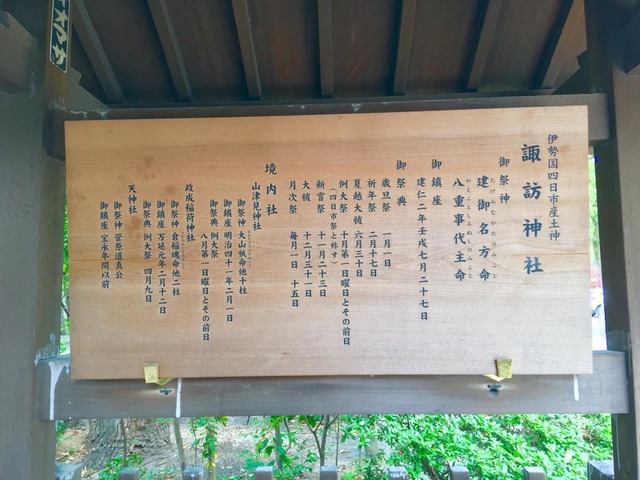 伊勢国四日市産土神
諏訪神社
御祭神
建御名方命
たけみなかたのみこと
八重事代主命
やえことしろぬしのみこと
御鎮座
建仁二年壬戌七月二十七日
御祭典
歳旦祭 一月一日
祈年祭 二月十七日
夏越大祓 六月三十日
例大祭 十月第一日曜日とその前日
(四日市祭と称す)
新嘗祭 十一月二十三日
大祓 十二月三十一日
月次祭 毎月一日 十五日
境内社
山津見神社
御祭神 大山祇命他十柱
御鎮座 明治四十一年二月一日
御祭典 例大祭
八月第一日曜日とその前日
政成稲荷神社
御祭神 倉稲魂命他二柱
御鎮座 万延元年二月十二日
御祭典 例大祭 四月九日
天神社
御祭神 菅原道真公
御鎮座 宝永年間以前
オマサ